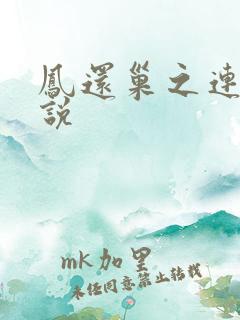 鳳還巢之連
說
mk加里
未經同意禁止轉載